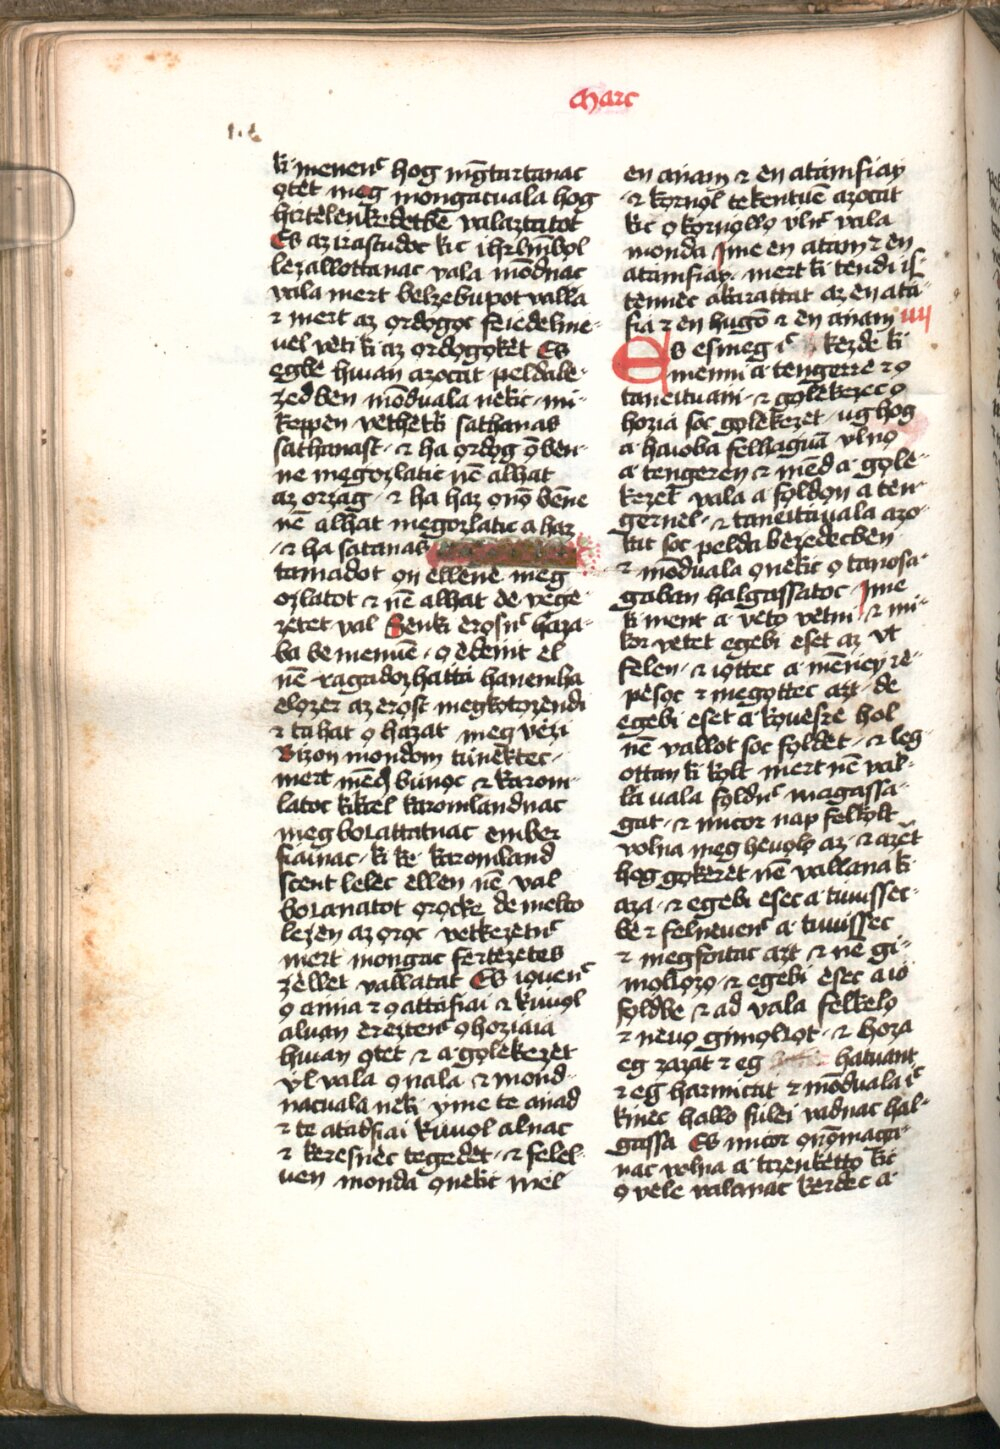 Marc
ki menenc̄ hog mḡtartanac
ọtèt meg mongacuala hog
hirtelenkèdetbē valaztatot
Es az irastudoc kic ihrłmbọl
lezallottanac vala mōdnac
vala mert belzebupot valla
⁊ mert az ọrdọgọc feiedelme-
uel vèti ki az ọrdọgọkèt Es
egbè hiuan azocat peldabè-
zedben mōduala nèkic · mi-
keppen vèthetki sathanas
sathanast · ⁊ ha ọrdọg ọ̄ben-
ne megozlatic nē alhat
az orzag · ⁊ ha haz ọnọ̄ bēne
nē alhat megozlatic a haz
· ⁊ ha satanas
tamadot ọn ellēnè meg
ozlatot ⁊ nē alhat de vège-
zètèt val Senki ẹrọsnc̄ haza-
ba bemenuē · ọ èdenit el
nē ragadozhatta hanemha
elọzer az ẹrọst megkọtọzendi
⁊ tahat ọ hazat meg vèzi
Bizon mondom tùnèktec ·
mert mēd bùnọc ⁊ karom-
latoc kikèl karomlandnac
megbočattatnac ember
fiainac · ki kè karomland
scent lelec ellen nē val
bočanatot ọrọckè de mèlto
lezèn az ọrọc vetkezetnc̄
mert mongac fertèzetes
zèllèt vallattat Es iọuenc̄
ọ ańńa ⁊ ọ attafiai ⁊ kiuùl
aluan èreztenc̄ ọ hoziaia
hiuan ọtèt ⁊ a gọlèkezèt
ùl vala ọ nala ⁊ mond-
nacuala nèki yme te ańad
⁊ te atadfiai kiuọl alnac
⁊ kèresnèc tegedèt · ⁊ felel-
uèn monda ọnekic Mel
en ańam ⁊ en atamfiay
· ⁊ kọrnọl tèkentuē azocat
kic ọ kọrnọllọ ùlnc̄ vala
monda Ime en atam ⁊ en
atamfiay · mert ki tendi is-
tennèc akarattat az en ata-
fia ⁊ en hugō ⁊ en ańam IIII
Es esmeg ic̄ kezdè ki
menni a tengerrè ⁊ ọ
taneituani · ⁊ gọlèkezec ọ
hozia soc gọlèkezet · ug hog
a haioba felhaguā ùlnọ
a tengeren ⁊ mēd a gọle-
kezet vala a fọldọn a ten-
gernel · ⁊ taneituala azo-
kat soc pelda bezedecben
⁊ mōduala ọnekic ọ tanosa-
gaban halgassatoc Ime
ki ment a vetọ vètni ⁊ mi-
kor vetèt egebi esèt az vt
felen · ⁊ iọttec a mēńèy rè-
pèsọc ⁊ megọttec azt · de
egebi esèt a kọuesre hol
nē vallot soc fọldèt · ⁊ leg-
ottan ki kọlt mert nē val-
la uala fọldnc̄ magassa-
gat · ⁊ micor nap felkọlt
volna meg heuọlọ az · ⁊ azèt
hog gọkerèt nē vallana ki
aza · ⁊ egebi esec a tuuissec-
bè ⁊ felnèuenc̄ a tuuissec
⁊ megfoitac azt ⁊ nē gi-
mọlčọzọ ⁊ egebi esec a io
fọldbe ⁊ ad vala felkelọ
⁊ nèuọ gimọlčọt · ⁊ hoza
eg zazat ⁊ eg hatuant
⁊ eg harmictat ⁊ mōduala ic̄
kinec hallo fùlei vadnac hal-
gassa Es micor ọnọ̄maga-
nac volna a tizenkèttọ kic
ọ vèle valanac kèrdec a-